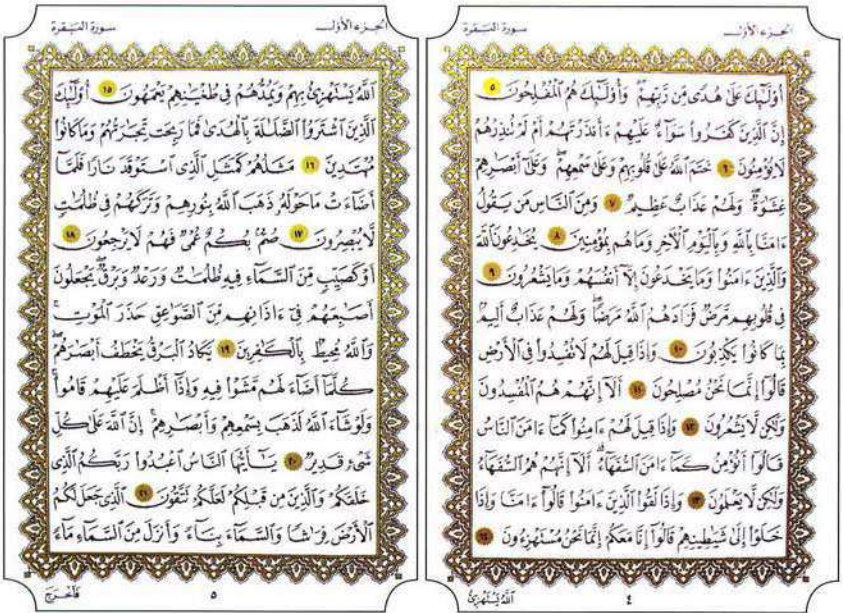 سورة البقرة
الجزء الأول
أُوْلَٰٓئِكَ عَلَىٰ هُدًى مِّن رَّبِّهِمْ ۖ وَأُوْلَٰٓئِكَ هُمُ ٱلْمُفْلِحُونَ ٥
إِنَّ ٱلَّذِينَ كَفَرُوا۟ سَوَآءٌ عَلَيْهِمْ ءَأَنذَرْتَهُمْ أَمْ لَمْ تُنذِرْهُمْ
لَا يُؤْمِنُونَ ٦ خَتَمَ ٱللَّهُ عَلَىٰ قُلُوبِهِمْ وَعَلَىٰ سَمْعِهِمْ ۖ وَعَلَىٰٓ أَبْصَٰرِهِمْ
غِشَٰوَةٌ ۖ وَلَهُمْ عَذَابٌ عَظِيمٌ ٧ وَمِنَ ٱلنَّاسِ مَن يَقُولُ
ءَامَنَّا بِٱللَّهِ وَبِٱلْيَوْمِ ٱلْءَاخِرِ وَمَا هُم بِمُؤْمِنِينَ ٨ يُخَٰدِعُونَ ٱللَّهَ
وَٱلَّذِينَ ءَامَنُوا۟ وَمَا يَخْدَعُونَ إِلَّآ أَنفُسَهُمْ وَمَا يَشْعُرُونَ ٩
فِى قُلُوبِهِم مَّرَضٌ فَزَادَهُمُ ٱللَّهُ مَرَضًا ۖ وَلَهُمْ عَذَابٌ أَلِيمٌۢ
بِمَا كَانُوا۟ يَكْذِبُونَ ١٠ وَإِذَا قِيلَ لَهُمْ لَا تُفْسِدُوا۟ فِى ٱلْأَرْضِ
قَالُوٓا۟ إِنَّمَا نَحْنُ مُصْلِحُونَ ١١ أَلَآ إِنَّهُمْ هُمُ ٱلْمُفْسِدُونَ
وَلَٰكِن لَّا يَشْعُرُونَ ١٢ وَإِذَا قِيلَ لَهُمْ ءَامِنُوا۟ كَمَآ ءَامَنَ ٱلنَّاسُ
قَالُوٓا۟ أَنُؤْمِنُ كَمَآ ءَامَنَ ٱلسُّفَهَآءُ ۗ أَلَآ إِنَّهُمْ هُمُ ٱلسُّفَهَآءُ
وَلَٰكِن لَّا يَعْلَمُونَ ١٣ وَإِذَا لَقُوا۟ ٱلَّذِينَ ءَامَنُوا۟ قَالُوٓا۟ ءَامَنَّا وَإِذَا
خَلَوْا۟ إِلَىٰ شَيَٰطِينِهِمْ قَالُوٓا۟ إِنَّا مَعَكُمْ إِنَّمَا نَحْنُ مُسْتَهْزِءُونَ ١٤
٤
ٱللَّهُ يَسْتَهْزِئُ
سورة البقرة
الجزء الأول
ٱللَّهُ يَسْتَهْزِئُ بِهِمْ وَيَمُدُّهُمْ فِى طُغْيَٰنِهِمْ يَعْمَهُونَ ١٥ أُوْلَٰٓئِكَ
ٱلَّذِينَ ٱشْتَرَوُا۟ ٱلضَّلَٰلَةَ بِٱلْهُدَىٰ فَمَا رَبِحَت تِّجَٰرَتُهُمْ وَمَا كَانُوا۟
مُهْتَدِينَ ١٦ مَثَلُهُمْ كَمَثَلِ ٱلَّذِى ٱسْتَوْقَدَ نَارًا فَلَمَّآ
أَضَآءَتْ مَا حَوْلَهُۥ ذَهَبَ ٱللَّهُ بِنُورِهِمْ وَتَرَكَهُمْ فِى ظُلُمَٰتٍ
لَّا يُبْصِرُونَ ١٧ صُمٌّۢ بُكْمٌ عُمْىٌ فَهُمْ لَا يَرْجِعُونَ ١٨
أَوْ كَصَيِّبٍ مِّنَ ٱلسَّمَآءِ فِيهِ ظُلُمَٰتٌ وَرَعْدٌ وَبَرْقٌ يَجْعَلُونَ
أَصَٰبِعَهُمْ فِىٓ ءَاذَانِهِم مِّنَ ٱلصَّوَٰعِقِ حَذَرَ ٱلْمَوْتِ ۚ
وَٱللَّهُ مُحِيطٌۢ بِٱلْكَٰفِرِينَ ١٩ يَكَادُ ٱلْبَرْقُ يَخْطَفُ أَبْصَٰرَهُمْ ۖ
كُلَّمَآ أَضَآءَ لَهُم مَّشَوْا۟ فِيهِ وَإِذَآ أَظْلَمَ عَلَيْهِمْ قَامُوا۟ ۚ
وَلَوْ شَآءَ ٱللَّهُ لَذَهَبَ بِسَمْعِهِمْ وَأَبْصَٰرِهِمْ ۚ إِنَّ ٱللَّهَ عَلَىٰ كُلِّ
شَىْءٍ قَدِيرٌ ٢٠ يَٰٓأَيُّهَا ٱلنَّاسُ ٱعْبُدُوا۟ رَبَّكُمُ ٱلَّذِى
خَلَقَكُمْ وَٱلَّذِينَ مِن قَبْلِكُمْ لَعَلَّكُمْ تَتَّقُونَ ٢١ ٱلَّذِى جَعَلَ لَكُمُ
ٱلْأَرْضَ فِرَٰشًا وَٱلسَّمَآءَ بِنَآءً وَأَنزَلَ مِنَ ٱلسَّمَآءِ مَآءً
٥
فَأَخْرَجَ